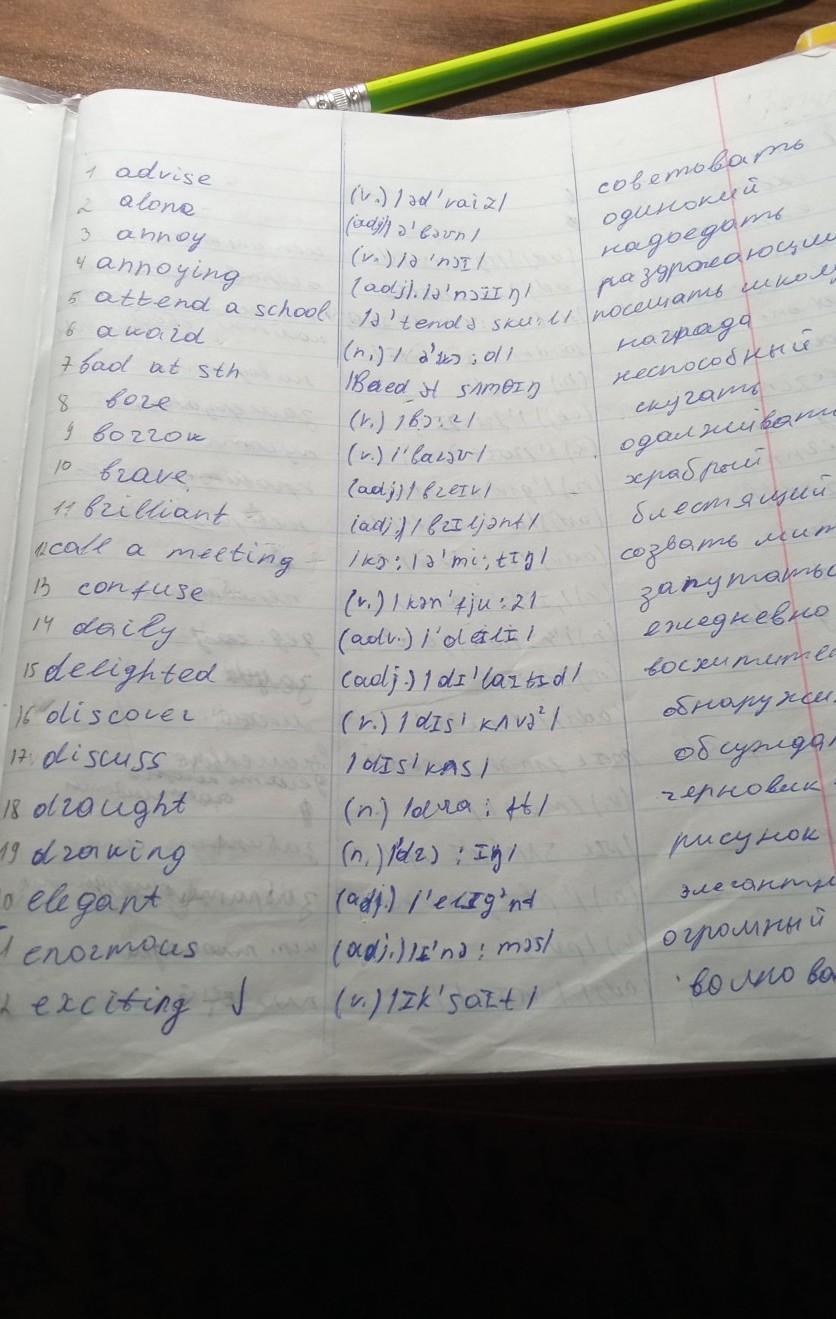 1 advise (v.) /əd'vaiz/ советовать
2 alone (adj) /ə'ləʊn/ одинокий
3 annoy (v.) /ə'nɔI/ надоедать
4 annoying (adj). /ə'nɔIIŋ/ раздражающий
5 attend a school /ə'tendə sku:l/ посещать школу
6 award (n.) / ə'wɔ:d/ награда
7 bad at sth /Baed ət sʌmθIŋ неспособный
8 bore (v.) /bɔ:r/ скучать
9 borrow (v.) /'bɒrəʊ/ одалживать
10 brave (adj) /breIv/ храбрый
11 brilliant (adj) /brIljənt/ блестящий
12 call a meeting /kɔ:lə'mi:tIŋ/ созвать мит
13 confuse (v.) /kən'fju:z/ запутать
14 daily (adv.) /'deIlI/ ежедневно
15 delighted (adj.) /dI'laItId/ восхитите
16 discover (v.) /dIs'kʌvə²/ обнаружи
17 discuss /dIs'kʌs/ обсужда
18 draught (n.) /dra:ft/ черновик
19 drawing (n.) /'drɔ:Iŋ/ рисунок
0 elegant (adj.) /'elIgᵊnt элегантн
1 enormous (adj.) /I'nɔ:məs/ огромный
2 exciting (v.) /Ik'saIt/ волнова